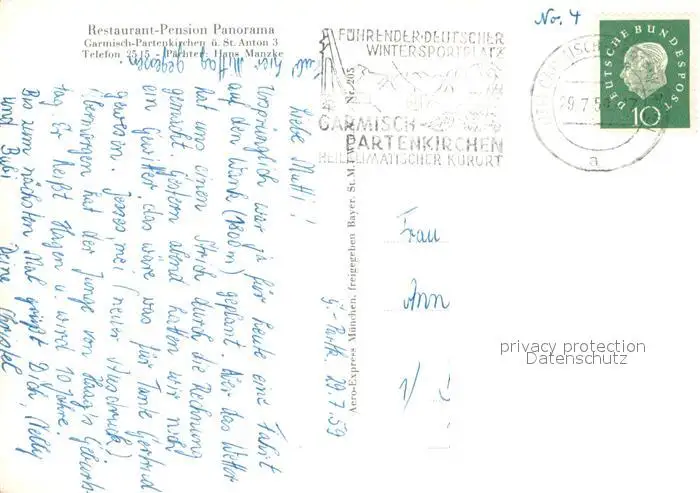 Restaurant-Pension Panorama
Garmisch-Partenkirchen ü. St. Anton 3
Telefon 2515 - Pächter: Hans Manzke
hier Mittag gegessen.
No. 4
FÜHRENDER·DEUTSCHER
WINTERSPORTPLATZ
GARMISCH-
PARTENKIRCHEN
HEILKLIMATISCHER KURORT
29.7.59
a
DEUTSCHE BUNDESPOST
10
G.-Partk. 29.7.59
Liebe Mutti!
Ursprünglich war ja für heute eine Fahrt
auf den Wank (1800m) geplant. Aber das Wetter
hat uns einen Strich durch die Rechnung
gemacht. Gestern abend hatten wir nicht
ein Gewitter, das wäre was für Tante Gertrud
gewesen. Jesses mei (neuer Ausdruck)
Übermorgen hat der Junge von Haag's Geburts-
tag. Er heißt Hagen u. wird 10 Jahre.
Bis zum nächsten Mal grüßt Dich, Nelly
und Bubi
Deine
Aero-Express München, freigegeben Bayer. St. M. f. W. Nr. 205
Frau
Ann
privacy protection
Datenschutz